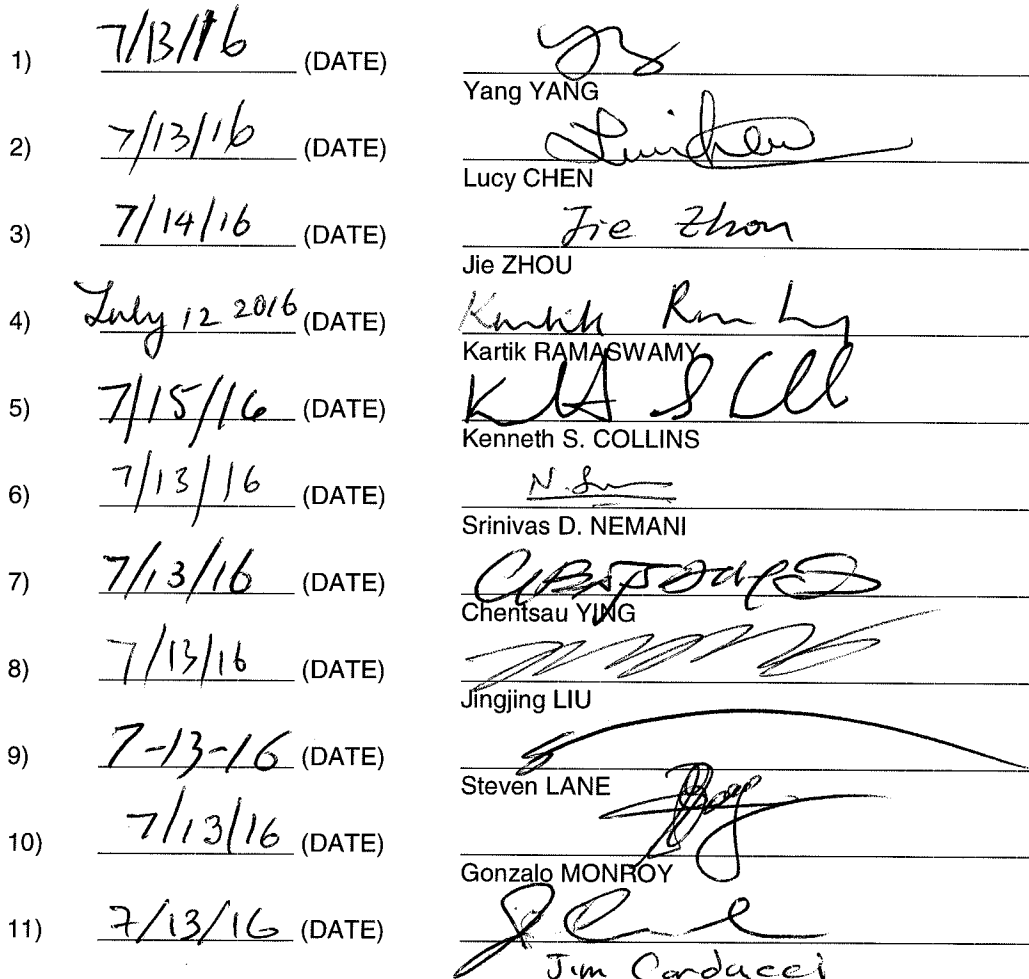 1) 7/13/16 (DATE)
Yang YANG
2) 7/13/16 (DATE)
Lucy CHEN
3) 7/14/16 (DATE) Jie Zhou
Jie ZHOU
4) July 12 2016 (DATE)
Kartik RAMASWAMY
5) 7/15/16 (DATE)
Kenneth S. COLLINS
6) 7/13/16 (DATE)
Srinivas D. NEMANI
7) 7/13/16 (DATE)
Chentsau YING
8) 7/13/16 (DATE)
Jingjing LIU
9) 7-13-16 (DATE)
Steven LANE
10) 7/13/16 (DATE)
Gonzalo MONROY
11) 7/13/16 (DATE)
Jim Carducci